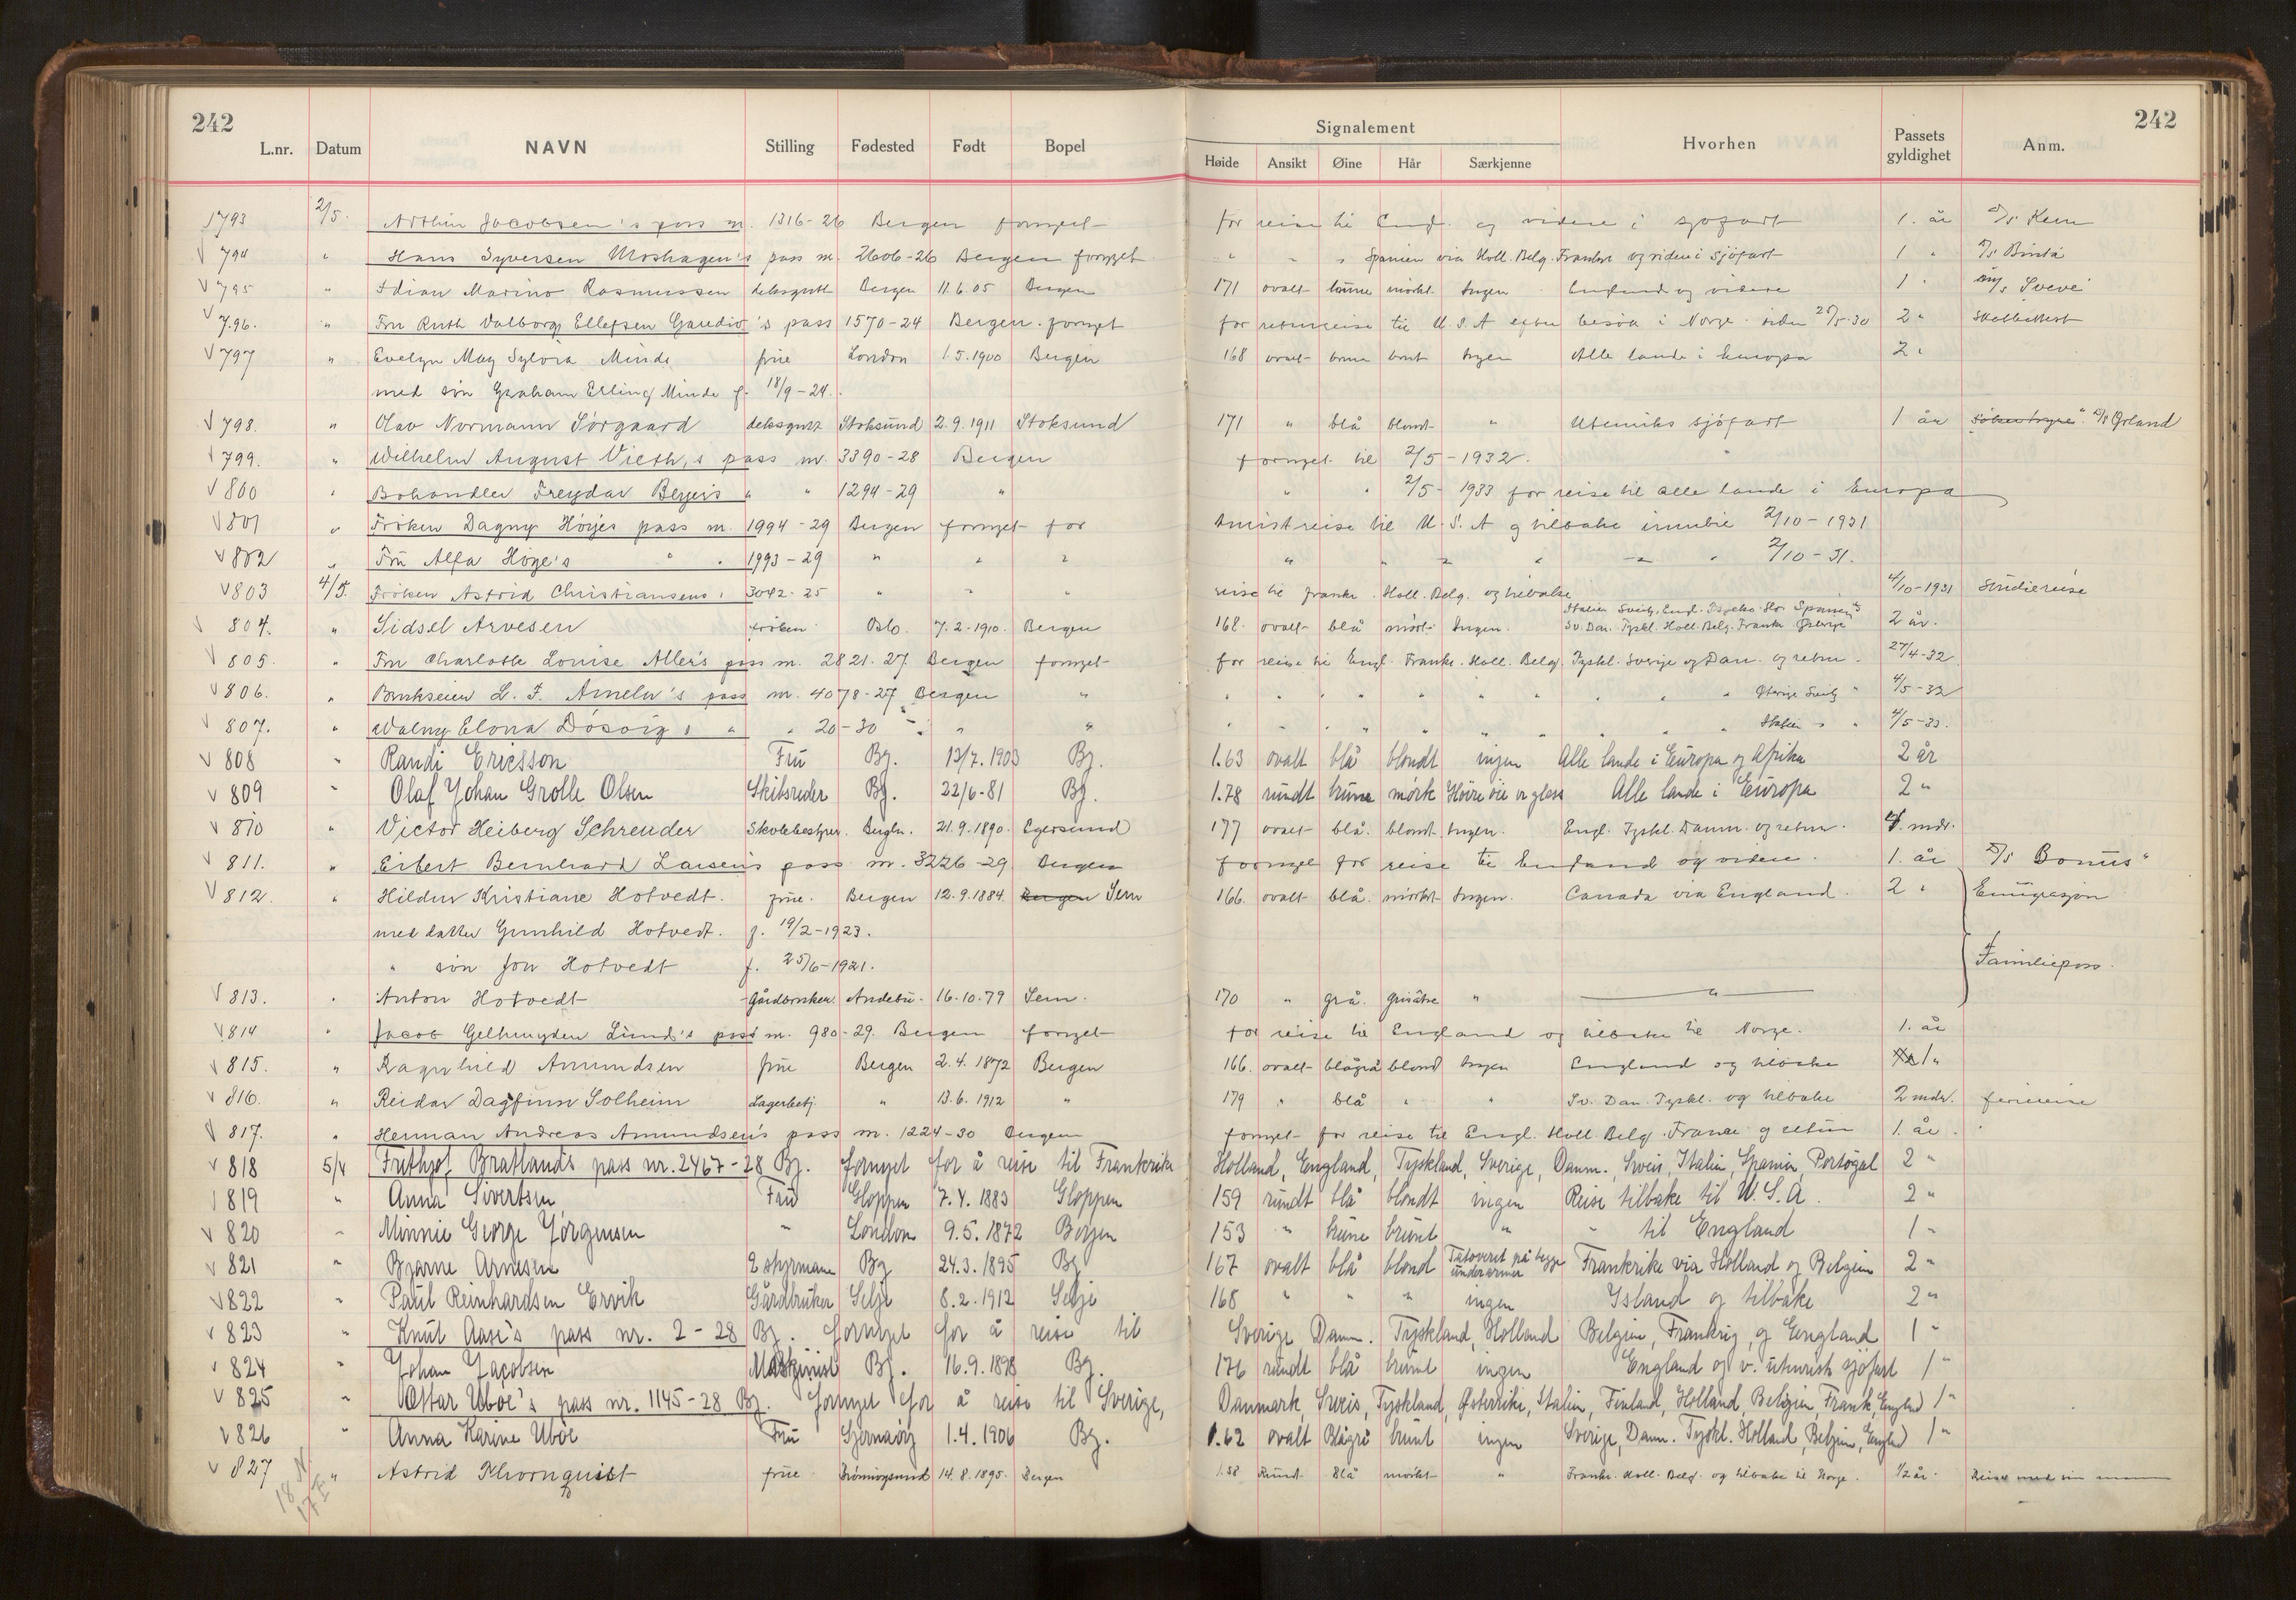 242
242
L.nr. Datum NAVN Stilling Fødested Født Bopel Signalement Høide Ansikt Øine Hår Særkjenne Hvorhen Passets gyldighet Anm.
1793 2/5. Arthur Jacobsen's pass nr. 1316-26 Bergen fornyet for reise til Engl. og videre i sjøfart 1. år D/S Kem
V 794 " Hans Syversen Moshagen's pass nr. 2606-26 Bergen fornyet " " " Spanien via Holl. Belg. Frankr og videre i sjøfart 1 "
V 795 " Marino Rasmussen deksgutt Bergen 11.6.05 Bergen 171 ovalt brune mørkt Ingen England og videre 1 "
V 796. " Fru Ruth Valborg Ellefsen 's pass 1570-24 Bergen. fornyet for returreise til U.S.A efter besøk i Norge siden 2 "
V 797 " Evelyn May Sylvia Minde frue London 1.5.1900 Bergen 168 ovalt brune brunt Ingen Alle lande i Europa 2 "
med søn Graham Erling Minde f. 18/9-24.
V 798. " Olav Normann Sørgaard deksgutt Stoksund 2.9.1911 Stoksund 171 " blå blondt " Utenriks sjøfart 1 år D/S Ørland
V 799. " Wilhelm August Vieth,s pass nr. 3390-28 Bergen fornyet til 2/5-1932.
V 800 " Bohandler Freydar 's " " 1294-29 " " " 2/5-1933 for reise til alle lande i Europa
V 801 " Frøken Dagny pass nr. 1994-29 Bergen fornyet for Turistreise til U.S.A og tilbake innen 2/10-1931
V 802 " Fru Alfa Høye's " " 1993-29 " " " " " " " 2/10-31.
V 803 4/5. Frøken Astrid Christiansens " 3042-25 " " " reise til Frankr. Holl. Belg. og tilbake 4/10-1931 Studiereise
V 804. " Sidsel Arvesen frøken Oslo. 7.2.1910. Bergen 168. ovalt blå mørkt Ingen. Italien Sveits. Engl. Spanien Sv. Dan. Tyskl. Holl. Belg. Frankr. Østerrige 2 år.
V 805. " Fru Charlotte Louise Aller's pass nr. 2821-27 Bergen fornyet for reise til Engl. Frankr. Holl. Belg. Tyskl. Sverige og Dan. og retur. 27/4-32
V 806. " L. F. 's pass nr. 4078-27 Bergen " " " " " " " " Østrige Sveitz " 4/5-32
V 807. " Valny Elona s " " 20-30 " " " " " " " " Italien " " 4/5-33.
V 808 " Randi Ericsson Fru Bg. 13/7.1903 Bg. 1.63 ovalt blå blondt ingen Alle lande i Europa og Afrika 2 år
V 809 " Olaf Johan Grolle Olsen Skibsreder Bg. 22/6-81 Bg. 1.78 rundt brune mørk Høire øie er glass Alle lande i Europa 2 "
V 810 " Victor Heiberg Schreuder Skolebestyrer. Bergen. 21.9.1890. Egersund 177 ovalt blå. blondt Ingen. Engl. Tyskl. Danm. og retur. mdr.
V 811. " Eilert Bernhard Larsen's pass nr. 3226-29 Bergen fornyet for reise til England og videre. 1. år D/S Bonus"
V 812. " Hildur Kristiane Hotvedt. frue. Bergen 12.9.1884. Bergen Sem 166. ovalt blå. mørkt Ingen. Canada via England. 2 " Emigrasjon
med datter Gunhild Hotvedt. f. 19/2-1923.
" søn Jon Hotvedt f. 25/6-1921. Familiepass.
V 813. " Anton Hotvedt Gårdbruker. Andebu. 16.10.79 Sem. 170 " grå. gråsv. " "
V 814 " Jacob Gelmuyden Lund's pass nr. 980-29. Bergen fornyet for reise til England og tilbake til Norge. 1. år
V 815. " Ragnhild Amundsen frue Bergen 2.4.1872 Bergen 166. ovalt blågrå blond Ingen England og tilbake 1 "
V 816. " Reidar Dagfinn Solheim Lagerbetj. " 13.6.1912 " 179 " blå " " Sv. Dan. Tyskl. og tilbake 2 mdr. ferireise
V 817. " Herman Andreas Amundsen's pass nr. 1224-30 Bergen fornyet for reise til Engl. Holl. Belg. Frankr og retur 1. år.
V 818 5/4 Frithjof Bratlands pass nr. 2467-28 Bg. fornyet for å reise til Frankrike Holland, England, Tyskland, Sverige, Danm. Sveis, Italien, Spanien, Portugal 2 "
V 819 " Anna Sivertsen Fru Gloppen 7.4.1883 Gloppen 159 rundt blå blondt ingen Reise tilbake til U.S.A. 2 "
V 820 " Minnie George Jørgensen " London 9.5.1872 Bergen 153 " brune brunt " " til England 1 "
V 821 " Bjarne Arnesen 2 styrmann Bg 24.3.1895 Bg 167 ovalt blå blond Tatoveret på begge underarmer Frankrike via Holland og Belgien 2 "
V 822 " Paul Reinhardsen Ervik Gårdbruker Selje 8.2.1912 Selje 168 " " " ingen Island og tilbake 2 "
V 823 " Knut Aase's pass nr. 2-28 Bg. fornyet for å reise til Sverige Danm. Tyskland, Holland Belgien, Frankrig, og England 1 "
V 824 " Johan Jacobsen Maskinist Bg. 16.9.1898 Bg. 176 rundt blå brunt ingen England og v. utenrik sjøfart 1 "
V 825 " Ottar Uboe's pass nr. 1145-28 Bg. fornyet for å reise til Sverige, Danmark, Sveis, Tyskland, Østerrike, Italien, Finland, Holland, Belgien, Frank, Englnd 1 "
V 826 " Anna Karine Uboe Fru 1.4.1906 Bg. 1.62 ovalt Blågrå brunt ingen Sverige, Danm. Tyskl. Holland, Belgien, Englnd 1 "
V 827 " Astrid Thornquist frue Brønnøysund 14.8.1895. Bergen 1.58 Rund Blå mørkt " Frankr. Holl. Belg. og tilbake til Norge. 1/2 år. Reiser med sin mann
18